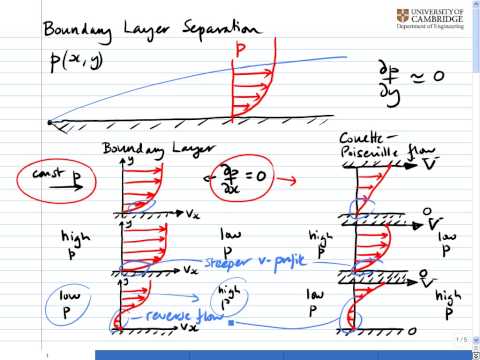 UNIVERSITY OF
CAMBRIDGE
Department of Engineering
Boundary Layer Separation
p(x,y)
p
∂p/∂y ≈ 0
Boundary Layer
Couette-
Poiseuille flow
const p
y
Vx
∂p/∂x = 0
V
0
high
p
y
low
p
high
p
V
low
p
0
steeper v-profile
low
p
y
Vx
high
p
reverse flow
low
p
V
high
p
0
1 / 5
1